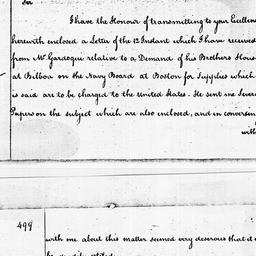 Sir
I have the Honour of transmitting to your Excellen
herewith enclosed a Letter of the 12 Instant which I have received
from Mr Gardoqui relative to a Demand of his Brothers House
at Bilboa on the Navy Board at Boston for Supplies which
is said are to be charged to the United States. He sent me Sever
Papers on the subject which are also enclosed, and in conversa
with
499
with me about this matter seemed very desirous that it